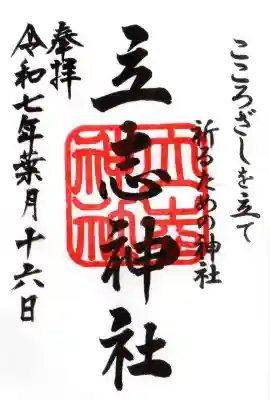 こころざしを立て
祈るための神社
立志神社
奉拝
令和七年葉月十六日